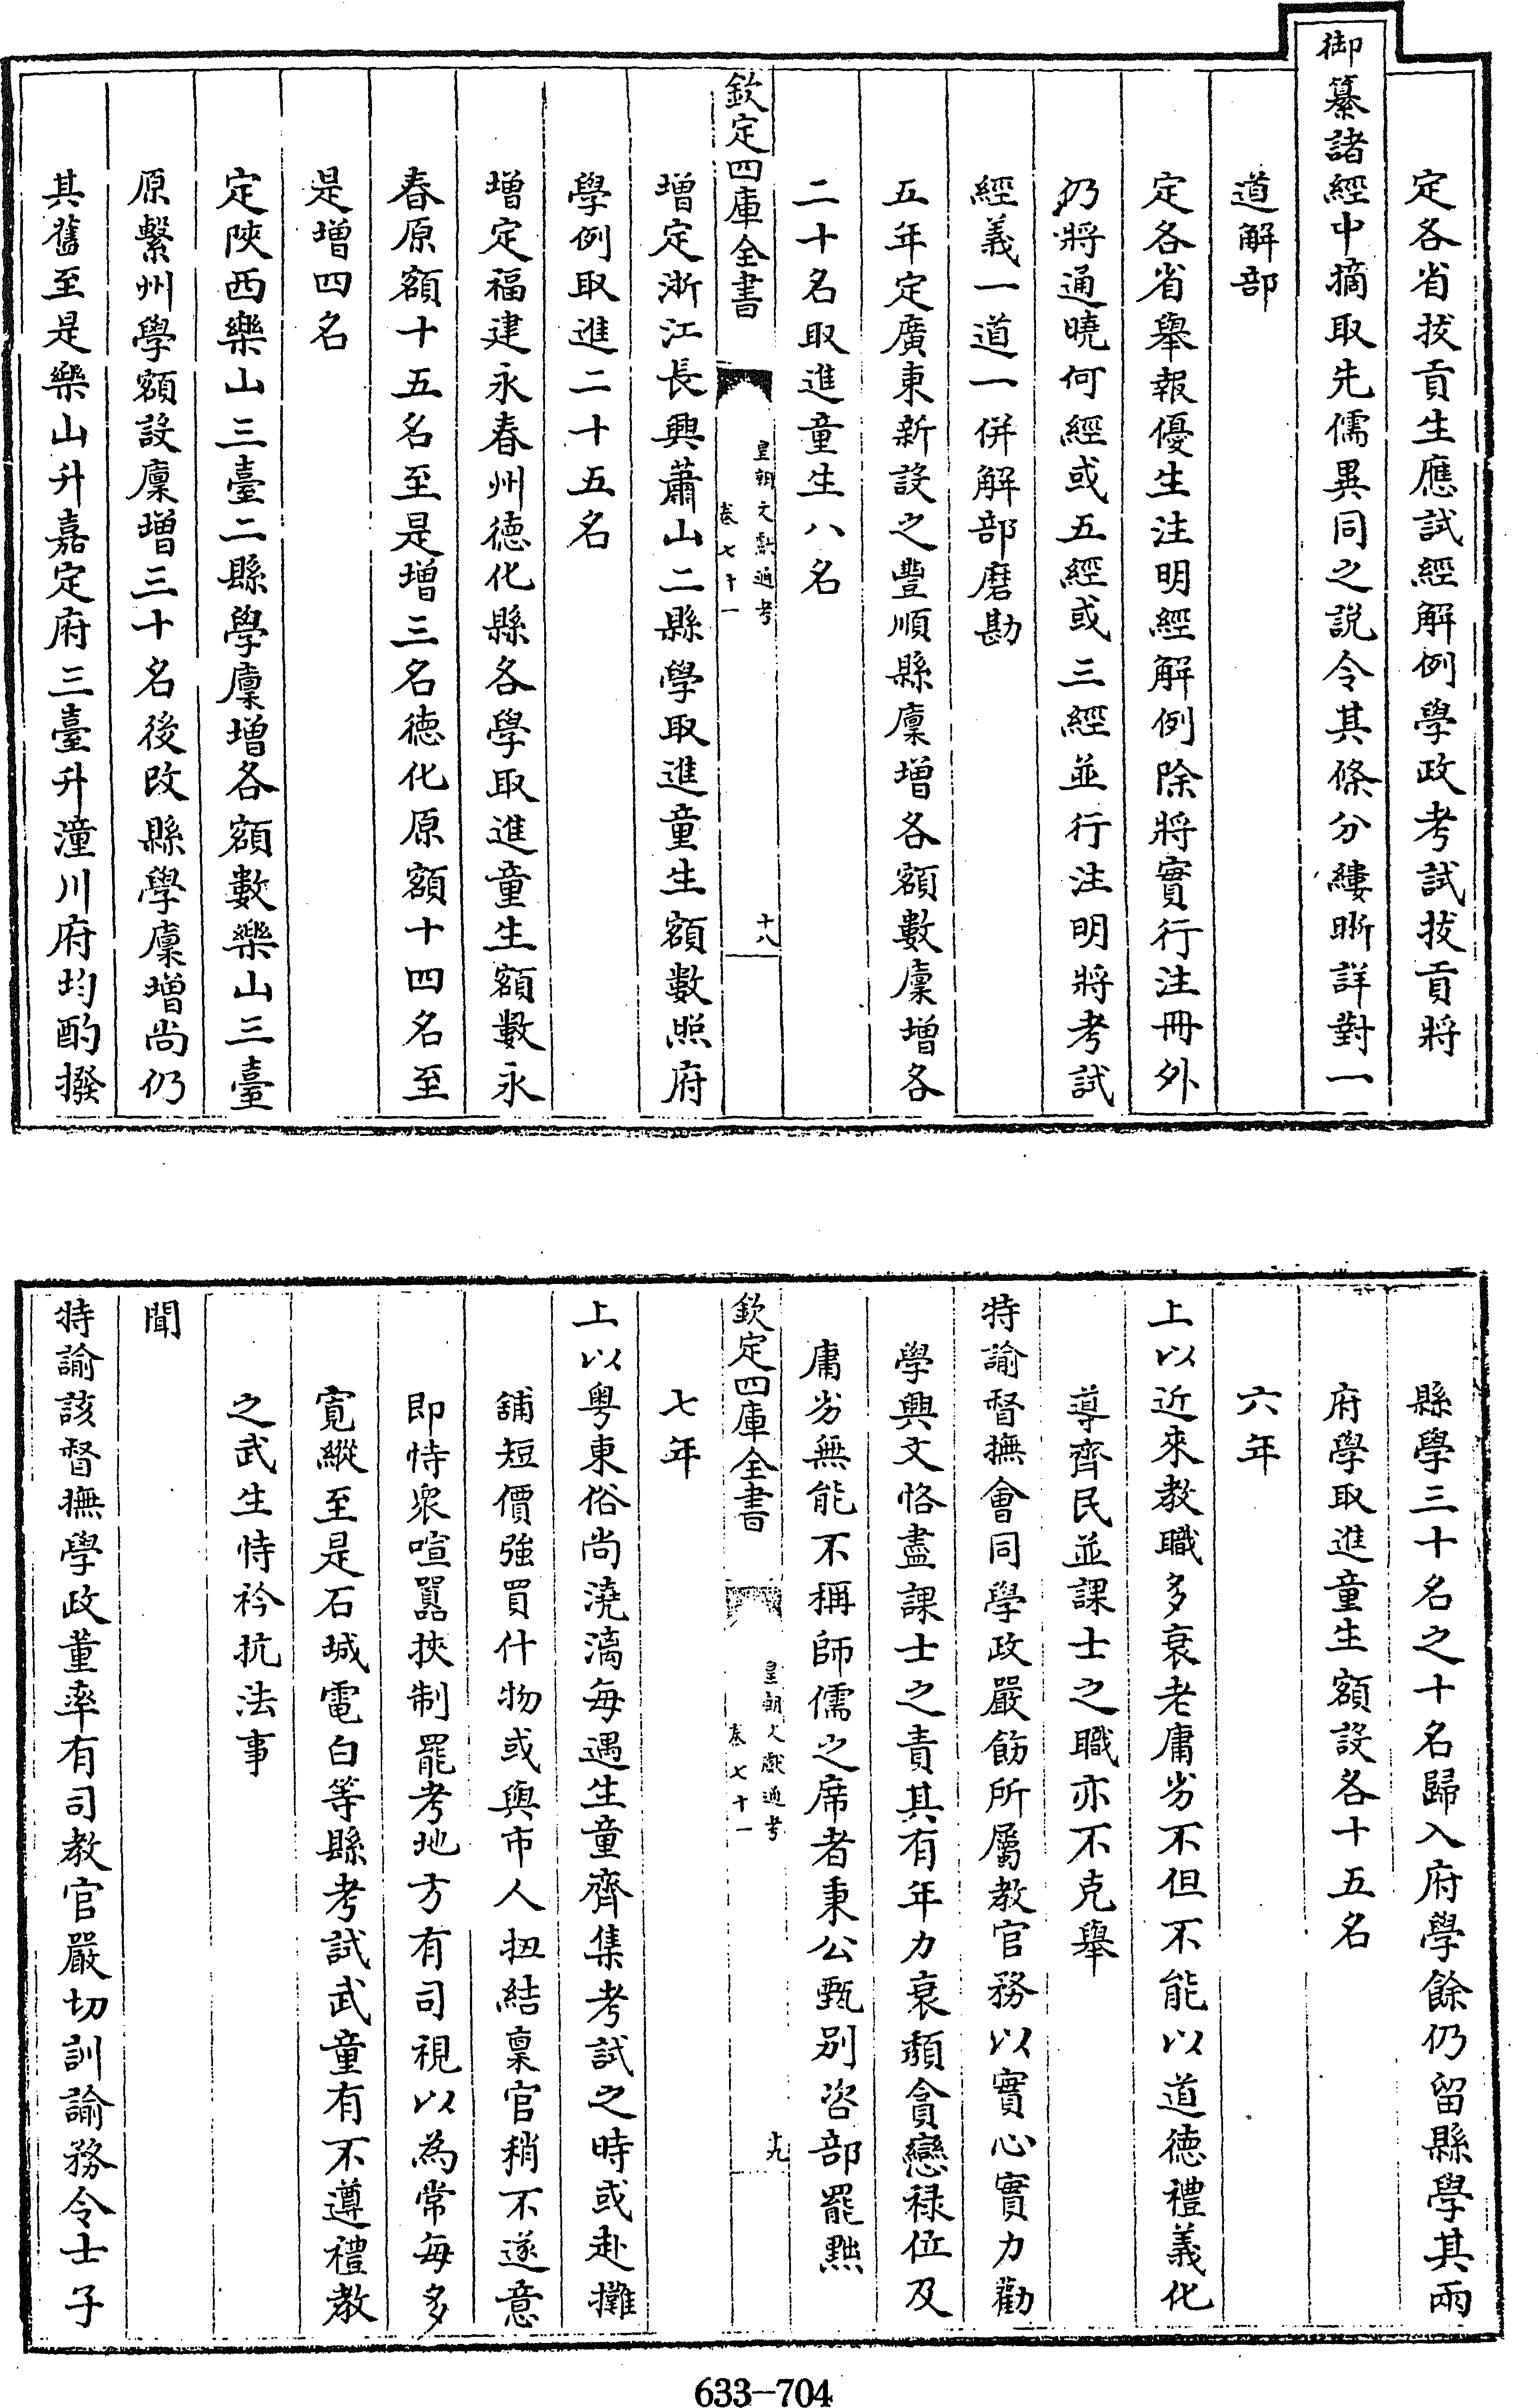 定各省拔貢生應試經解例學政考試拔貢將
御纂諸經中摘取先儒異同之説令其條分縷晰詳對一
道解部
定各省舉報優生注明經解例除將實行注冊外
仍將通曉何經或五經或三經並行注明將考試
經義一道一併解部磨勘
五年定廣東新設之豐順縣廩增各額數廩增各
二十名取進童生八名
欽定四庫全書
皇朝文獻通考
卷七十一
十八
增定浙江長興蕭山二縣學取進童生額數照府
學例取進二十五名
增定福建永春州德化縣各學取進童生額數永
春原額十五名至是增三名德化原額十四名至
是增四名
定陜西樂山三臺二縣學廩增各額數樂山三臺
原繫州學額設廩增三十名後改縣學廩增尚仍
其舊至是樂山升嘉定府三臺升潼川府均酌撥
縣學三十名之十名歸入府學餘仍留縣學其兩
府學取進童生額設各十五名
六年
上以近來教職多衰老庸劣不但不能以道德禮義化
導齊民並課士之職亦不克舉
特諭督撫會同學政嚴飭所屬教官務以實心實力勸
學興文恪盡課士之責其有年力衰頽貪戀禄位及
庸劣無能不稱師儒之席者秉公甄別咨部罷黜
欽定四庫全書
皇朝文獻通考
卷七十一
十九
七年
上以粤東俗尚澆漓每遇生童齊集考試之時或赴攤
舖短價強買什物或與市人扭結稟官稍不遂意
即恃衆喧嚚挾制罷考地方有司視以為常每多
寛縱至是石城電白等縣考試武童有不遵禮教
之武生恃衿抗法事
聞
特諭該督撫學政董率有司教官嚴切訓諭務令士子
633-704